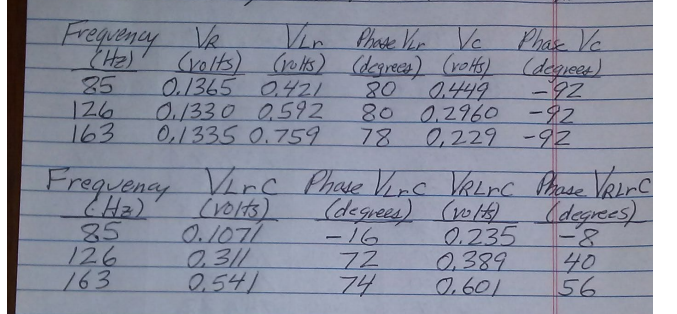 Frequency VR VLr Phase VLr Vc Phase Vc
(Hz) (volts) (volts) (degrees) (volts) (degrees)
85 0.1365 0.421 80 0.449 -92
126 0.1330 0.592 80 0.2960 -92
163 0.1335 0.759 78 0.229 -92
Frequency VLrC Phase VLrC VRLrC Phase VRLrC
(Hz) (volts) (degrees) (volts) (degrees)
85 0.1071 -16 0.235 -8
126 0.311 72 0.389 40
163 0.541 74 0.601 56